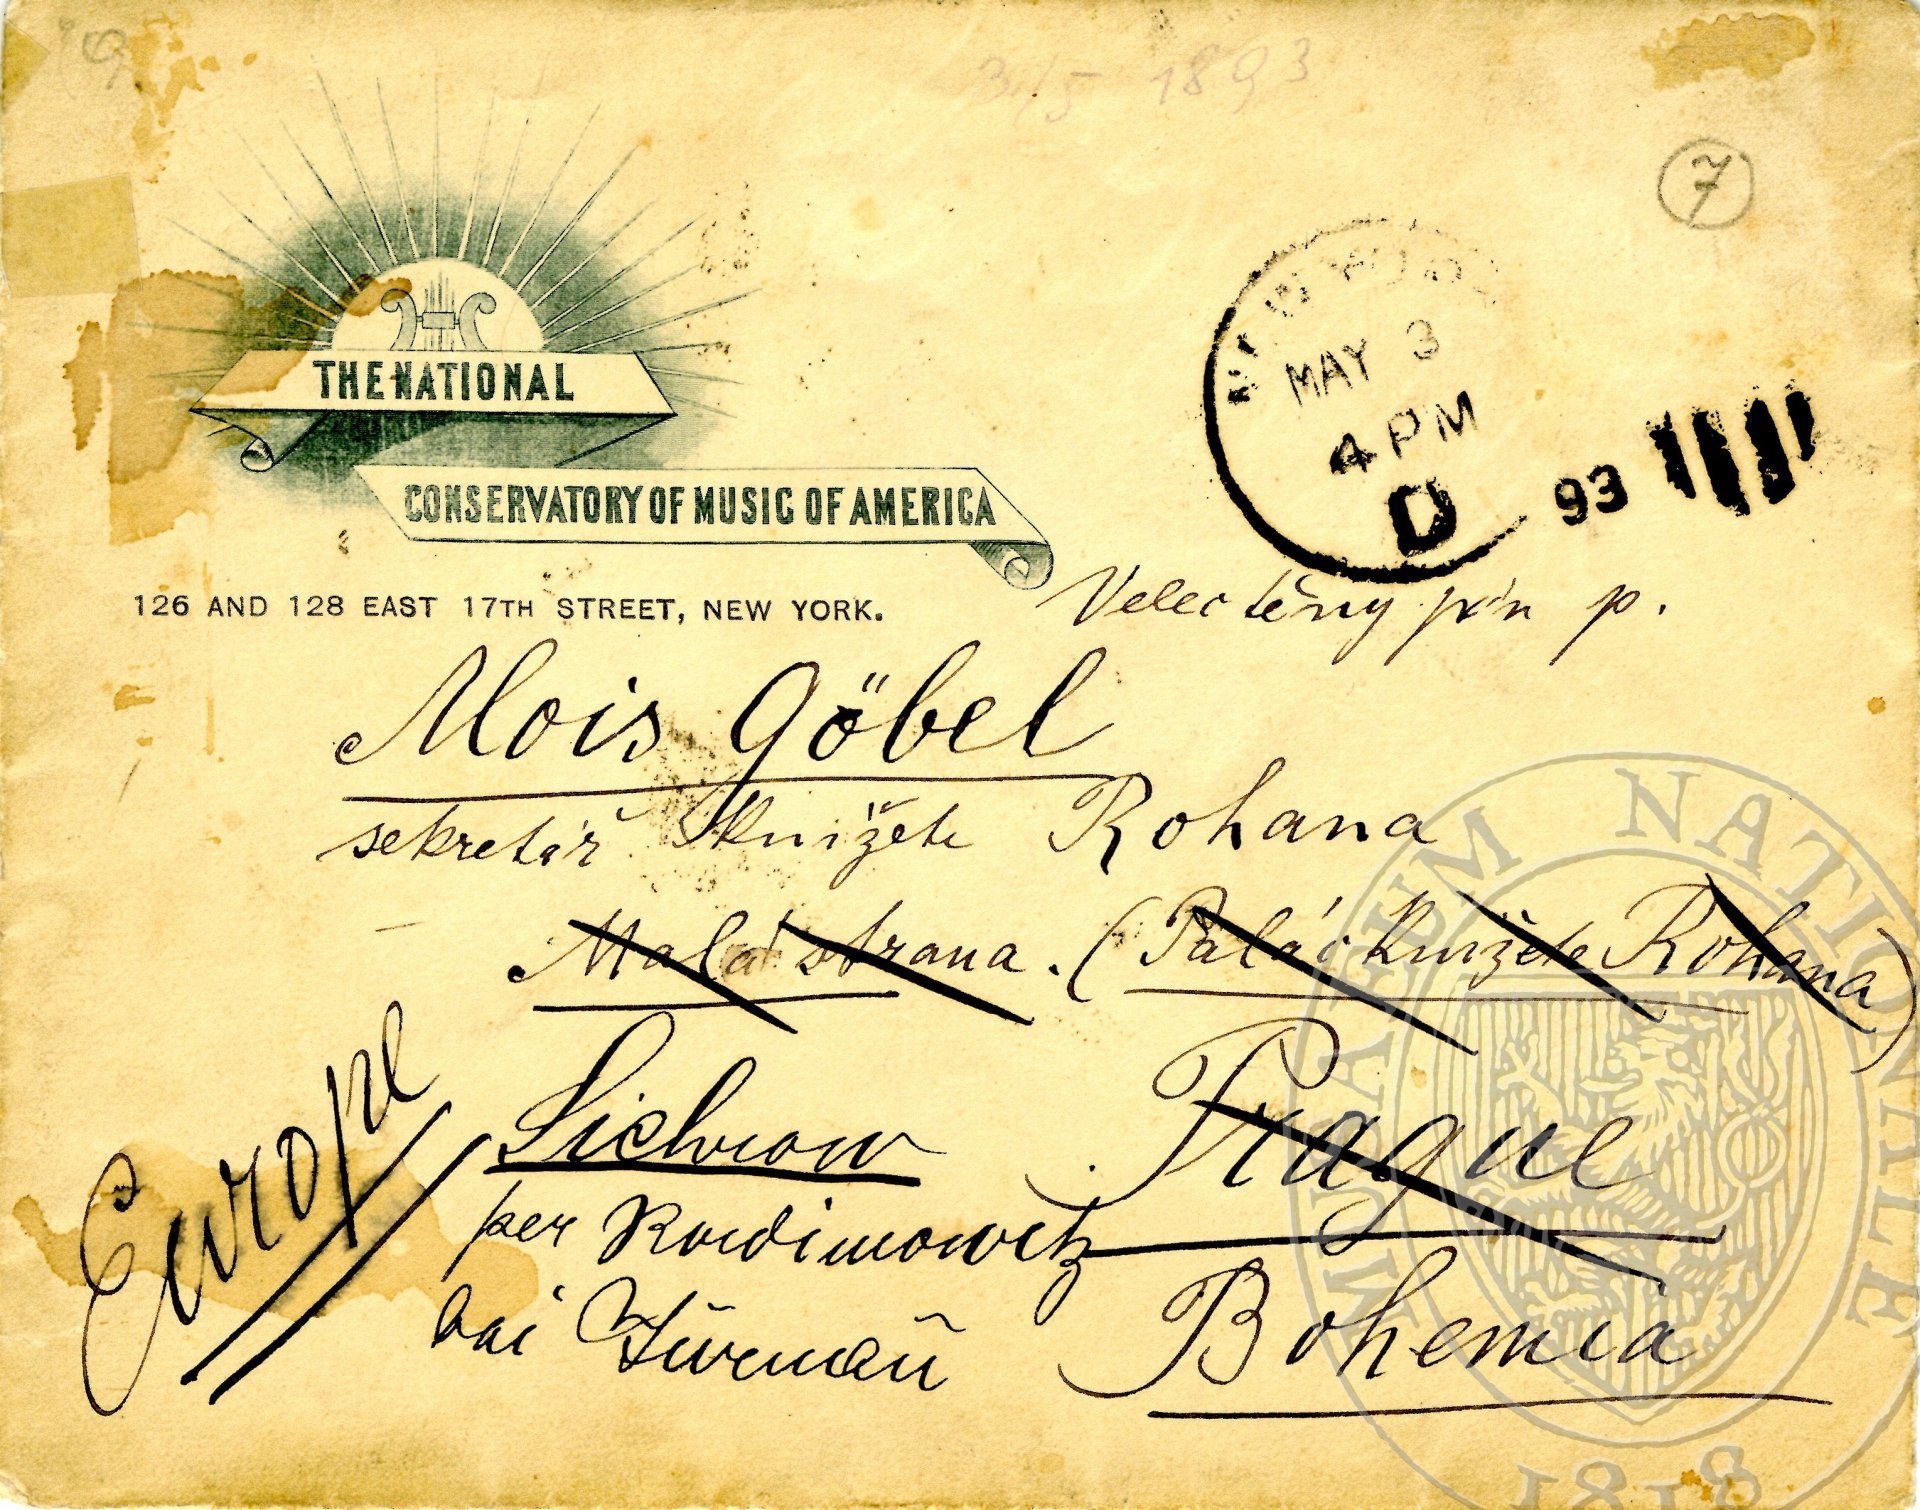 3/5 1893
7
THE NATIONAL
CONSERVATORY OF MUSIC OF AMERICA
126 AND 128 EAST 17TH STREET, NEW YORK.
NEW YORK
MAY 3
4 PM
D
93
Velectěný pán p.
Alois Göbel
sekretář knížete Rohana
Malá strana. (Palác knížete Rohana)
Prague
Bohemia
Europe
Sichrow
per Radimowitz
bei Turnau
MUSAEUM NATIONALE
1818